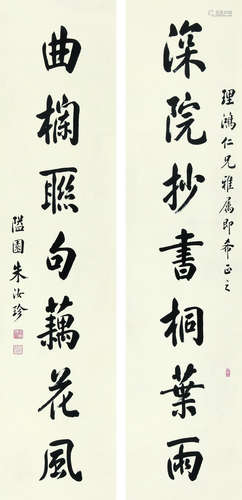 理鴻仁兄雅属即希正之
深院抄書桐葉雨
曲欄聯句藕花風
隘園朱汝珍